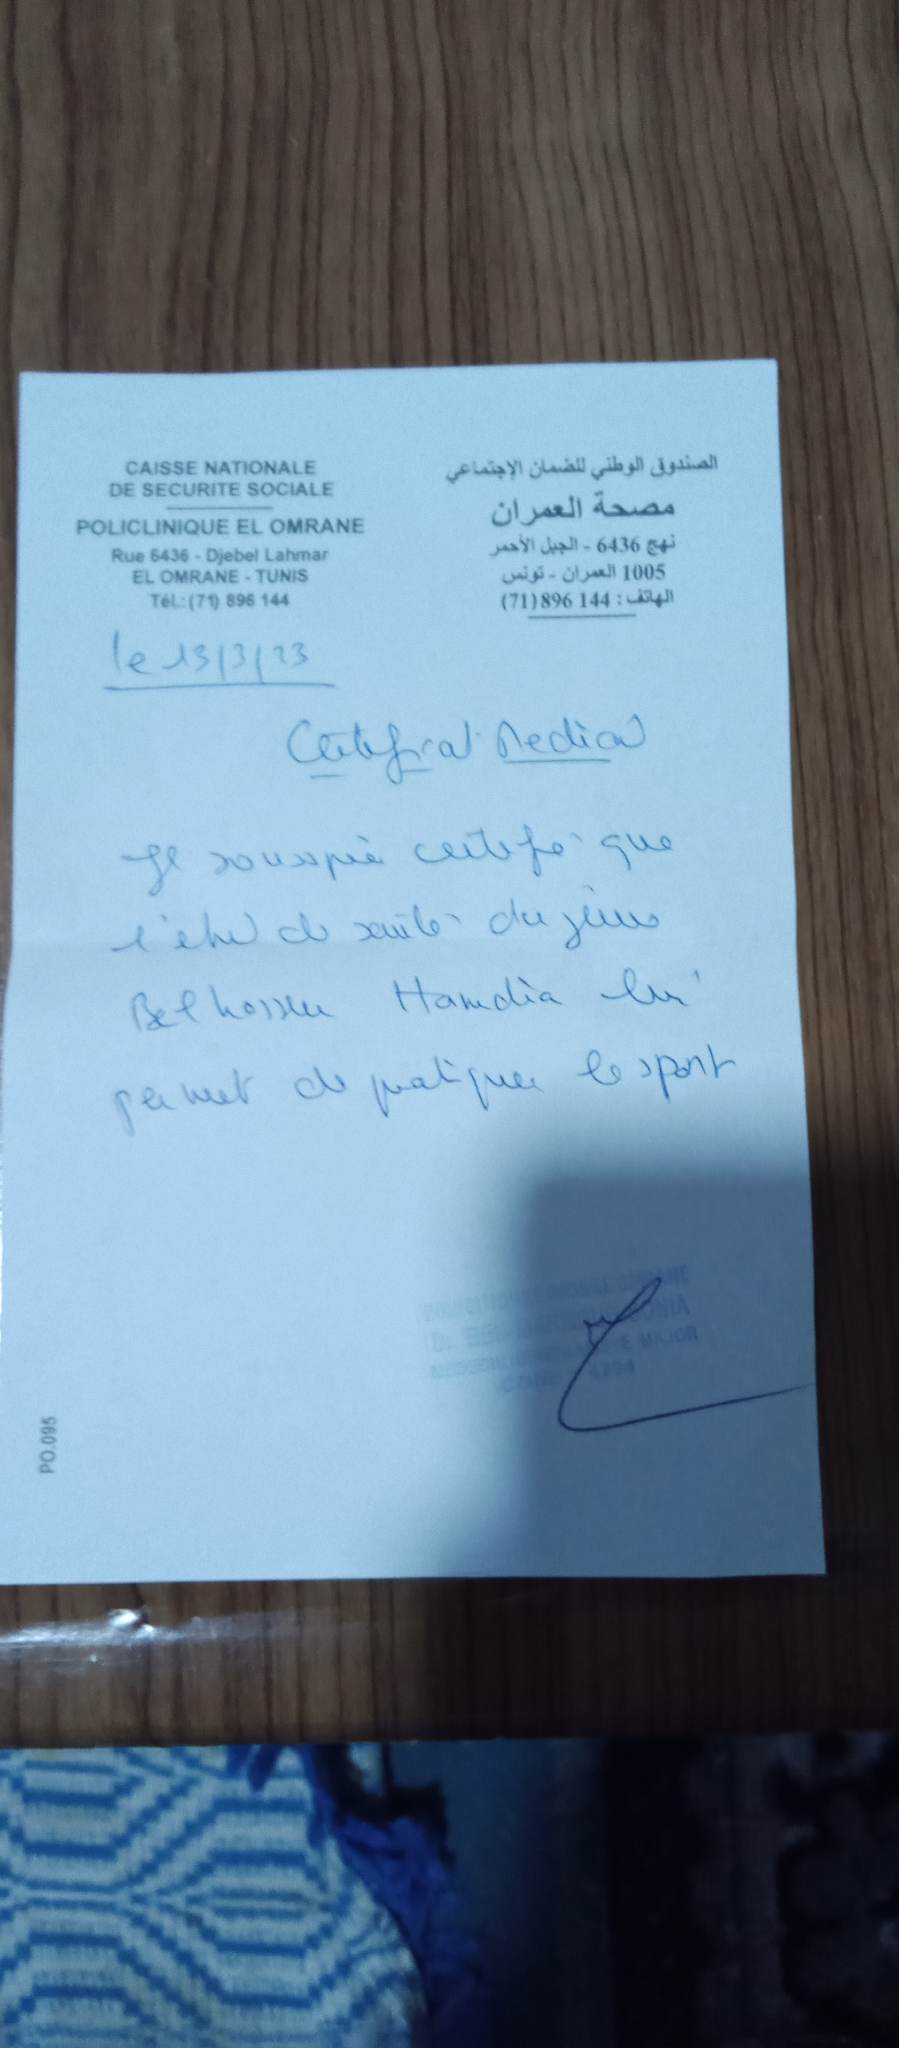 CAISSE NATIONALE
DE SECURITE SOCIALE
POLICLINIQUE EL OMRANE
Rue 6436 - Djebel Lahmar
EL OMRANE - TUNIS
Tél.: (71) 896 144
الصندوق الوطني للضمان الإجتماعي
مصحة العمران
نهج 6436 - الجبل الأحمر
1005 العمران - تونس
الهاتف : 144 896 (71)
le 13/3/23
Certificat Medical
Je soussigné certifie que
l'état de santé du jeune
Hamdia lui
permet de pratiquer le sport
MAJOR
PO.095